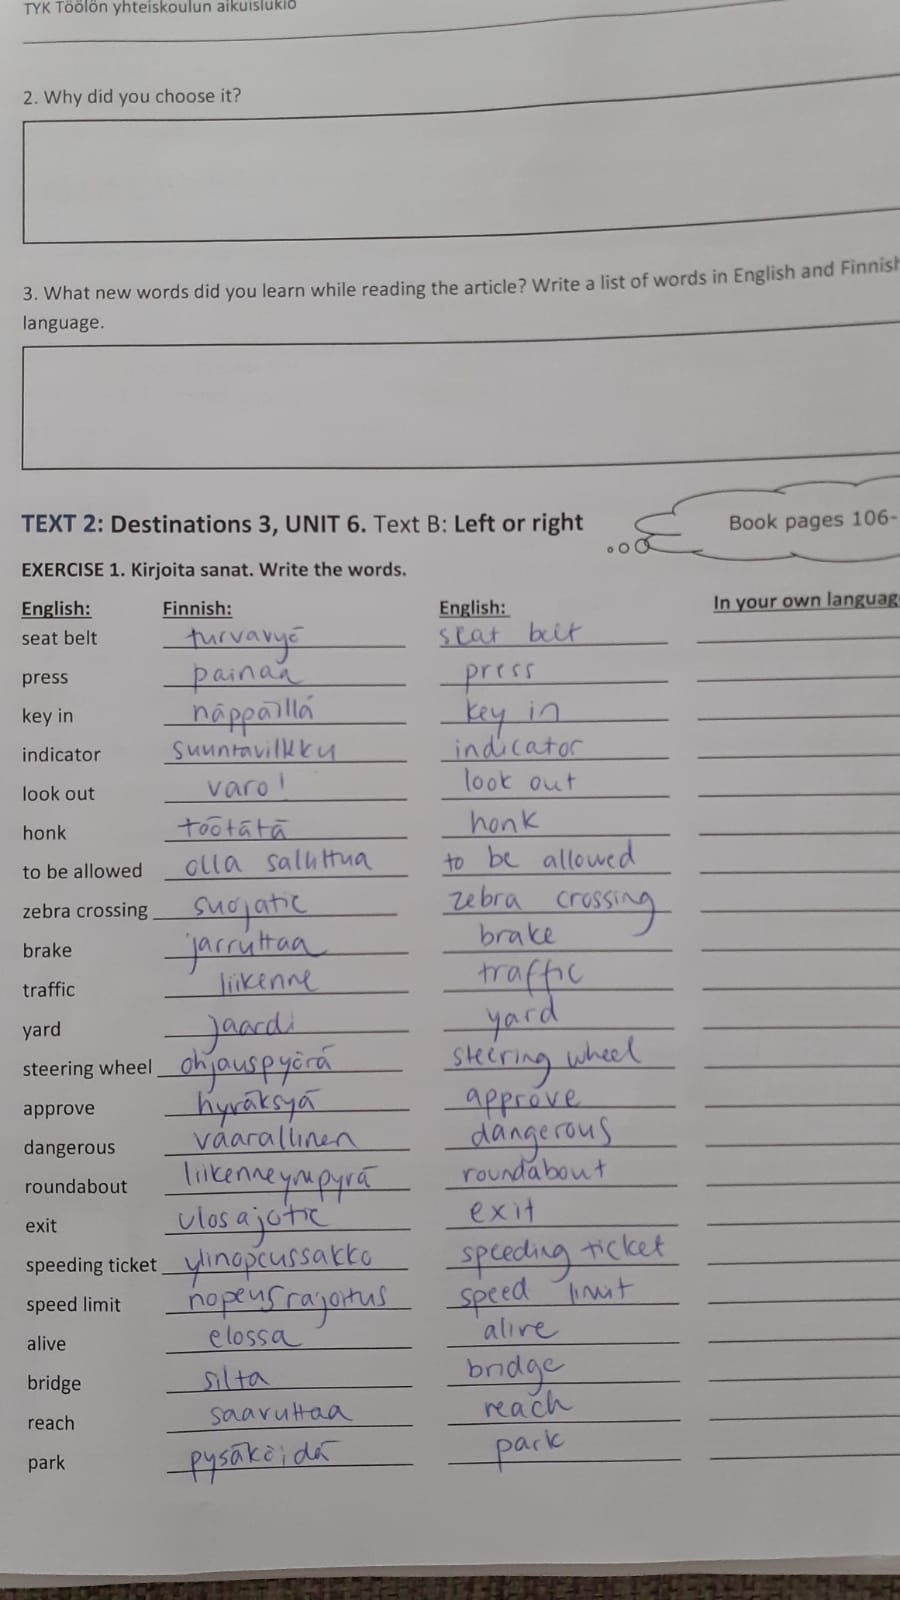 TYK Töölön yhteiskoulun aikuislukio
2. Why did you choose it?
3. What new words did you learn while reading the article? Write a list of words in English and Finnish
language.
TEXT 2: Destinations 3, UNIT 6. Text B: Left or right
Book pages 106-
EXERCISE 1. Kirjoita sanat. Write the words.
English: Finnish: English: In your own languag
seat belt turvavyö seat belt
press painaa press
key in näppäillä key in
indicator suuntavilkku indicator
look out varo! look out
honk töötätä honk
to be allowed olla sallittua to be allowed
zebra crossing suojatie zebra crossing
brake jarruttaa brake
traffic liikenne traffic
yard jaardi yard
steering wheel ohjauspyörä steering wheel
approve hyväksyä approve
dangerous vaarallinen dangerous
roundabout liikenneympyrä roundabout
exit ulosajotie exit
speeding ticket ylinopeussakko speeding ticket
speed limit nopeusrajoitus speed limit
alive elossa alive
bridge silta bridge
reach saavuttaa reach
park pysäköidä park